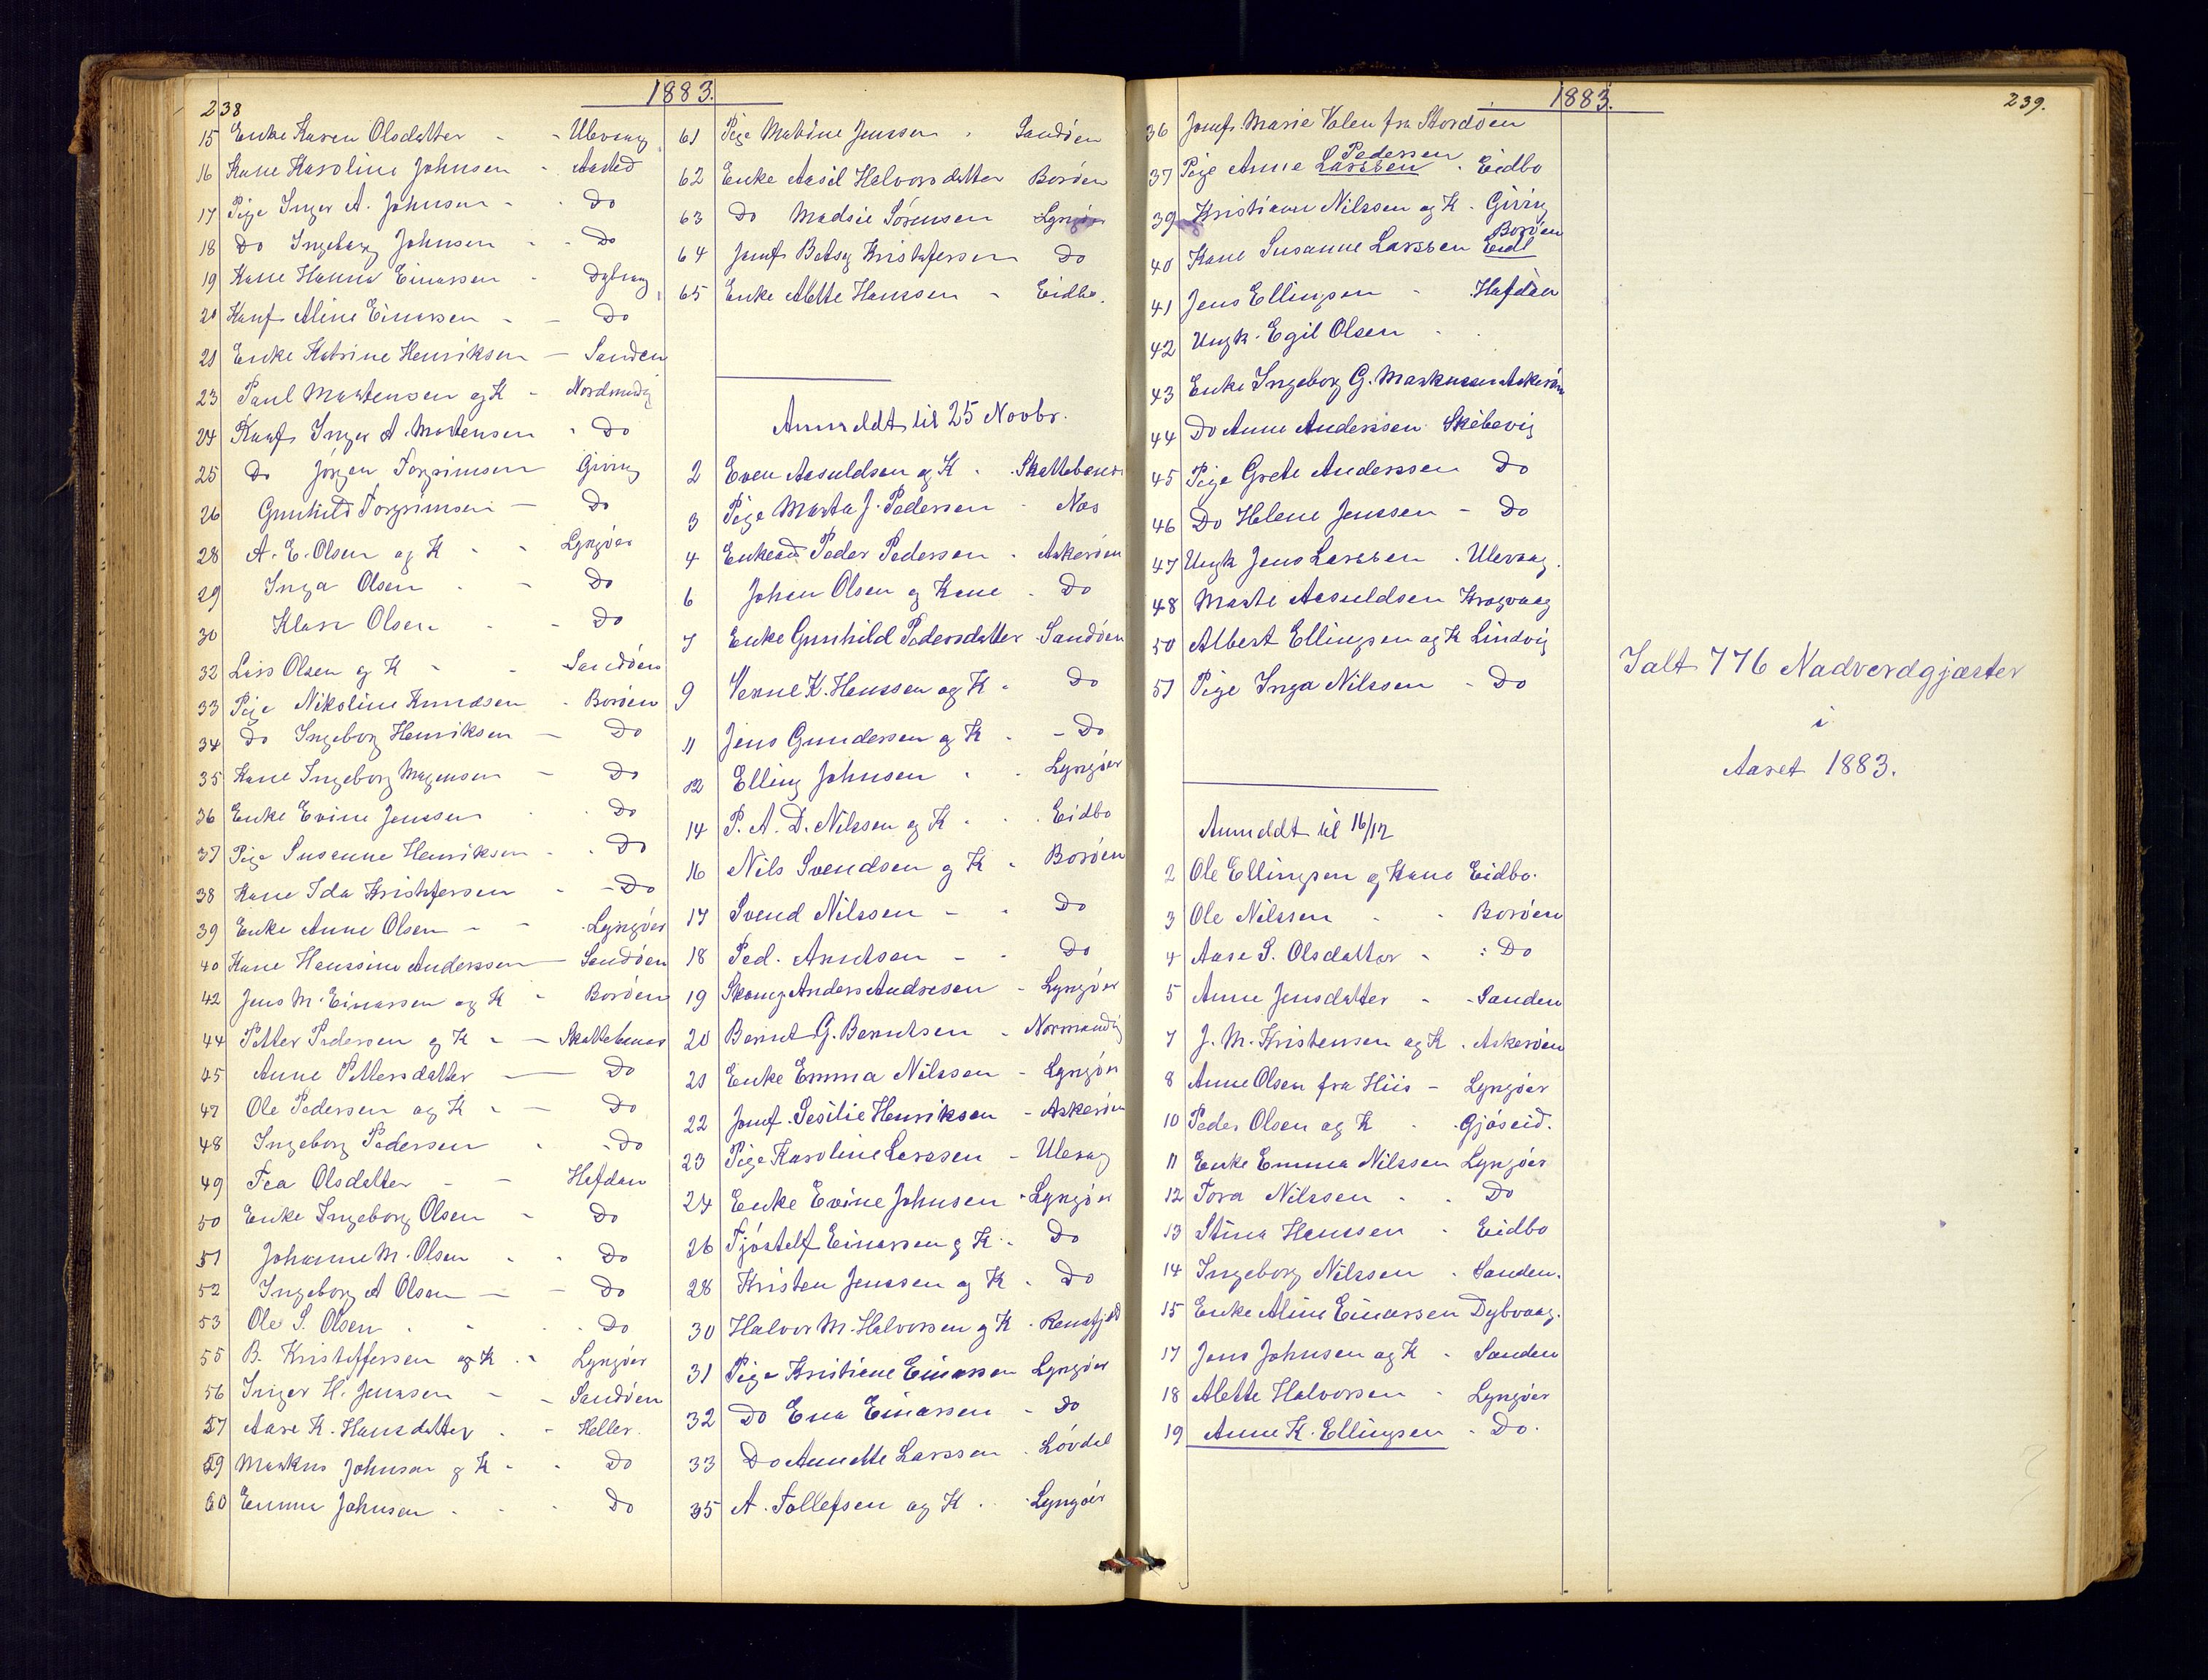 238
1883.
15 Enke Karen Olsdatter - - Ulevaag
16 Kone Karoline Johnsen - Aasted
17 Pige Inger A. Johnsen - - Do
18 Do Ingeborg Johnsen - - Do
19 Kone Hanna Einarssen - Dybvaag
20 Aline Einarssen - - Do
21 Enke Katrine Henriksen - Sanden
23 Paul Mortensen og K -
24 Inger A. Mortensen - Do
25 Do Jörgen Torgrimsen Giving
26 Gunhild Torgrimsen - Do
28 A. E. Olsen og K - - Lyngöer
29 Inga Olsen - - Do
30 Klara Olsen - - Do
32 Lars Olsen og K - - Sandöen
33 Pige Nikoline Knudsen - Boröen
34 Do Ingeborg Henriksen - Do
35 Kone Ingeborg Magensen - Do
36 Enke Evine Jenssen - - Do
37 Pige Susanne Henriksen - - Do
38 Kone Ida Kristofersen - - Do
39 Enke Anne Olsen - - Lyngöer
40 Kone Hanssine Anderssen - Sandöen
42 Jens M. Einarssen og K - Boröen
44 Petter Pedersen og K - - Skattebenes
45 Anne Pettersdatter - Do
47 Ole Pedersen og K - - Do
48 Ingeborg Pedersen - - Do
49 Tea Olsdatter - - Hafdan
50 Enke Ingeborg Olsen - Do
51 Johanne M. Olsen - - Do
52 Ingeborg A Olsen - - Do
53 Ole S. Olsen - - - Do
55 B. Kristoffersen og K - - Lyngöer
56 Inger H. Jenssen - - Sandöen
57 Aase K. Hansdatter - - Heller.
59 Markus Johnsen og K - - Do
60 Emma Johnsen - - - Do
61 Pige Mathine Jenssen - Sandöen
62 Enke Aasil Halvorsdatter Boröen
63 Do Madsie Sörensen Lyngöer
64 Jomf. Betsy Kristofersen Do
65 Enke Alette Hanssen - Eidbo.
Anmeldt til 25 Novbr.
2 Even Aasuldsen og K - Skattebenes
3 Pige Marta J. Pedersen - Næs
4 Enkem Peder Pedersen - Askeröen
6 Johan Olsen og Kone - Do
7 Enke Gunhild Pedersdatter Sandöen
9 K. Hanssen og K - Do
11 Jens Gundersen og K - - Do
12 Elling Johnsen - - Lyngöer
14 P. A. D. Nilssen og K - - Eidbo
16 Nils Svendsen og K - Boröen
17 Svend Nilssen - - Do
18 Ped. Arntsen - - Do
19 Skomg Anders Andresen - Lyngöer
20 Bernt G. Berntsen - Normandvig
21 Enke Emma Nilssen - Lyngöer
22 Jomf. Sesilie Henriksen - Askeröen
23 Pige Karoline Larssen - Ulevaag
24 Enke Evine Johnsen - Lyngöer
26 Tjöstelf Einarssen og K - Do
28 Kristen Jenssen og K - Do
30 Halvor M. Halvorsen og K - Rensfjeld
31 Pige Kristiane Einarssen Lyngöer
32 Do Ena Einarssen - Do
33 Do Annette Larssen - Lövdal
35 A. Tollefsen og K - Lyngöer
1883.
239.
36 Jomfr. Marie Valen fra Stordöen
Pedersen
37 Pige Anne Larssen - Eidbo
39 Kristian Nilssen og K - Giving
Boröen
40 Kone Susanne Larssen Eidb
41 Jens Ellingsen - Hafdan
42 Ungk. Egil Olsen - -
43 Enke Ingeborg G. Markussen Askeröen
44 Do Anne Anderssen Skibevig
45 Pige Grete Anderssen Do
46 Do Helene Jenssen - Do
47 Ungk Jens Larssen - Ulevaag.
48 Marte Aasuldsen Kragvaag
50 Albert Ellingsen og K Lindvig
51 Pige Inga Nilssen - Do
Anmeldt til 16/12
2 Ole Ellingsen og Kone Eidbo.
3 Ole Nilssen - - Boröen
4 Aase S. Olsdatter - - Do
5 Anne Jensdatter - - Sanden
7 J. M. Kristensen og K - Askeröen
8 Anne Olsen fra Hiis - Lyngöer
10 Peder Olsen og K - - Gjöseid.
11 Enke Emma Nilssen Lyngöer
12 Tora Nilssen - - Do
13 Stina Hanssen - Eidbo
14 Ingeborg Nilssen - Sanden.
15 Enke Aline Einarssen Dybvaag.
17 Jens Johnsen og K - Sanden
18 Alette Halvorsen - Lyngöer
19 Anne K. Ellingsen - Do.
Ialt 776 Nadverdgjæster
i
Aaret 1883.